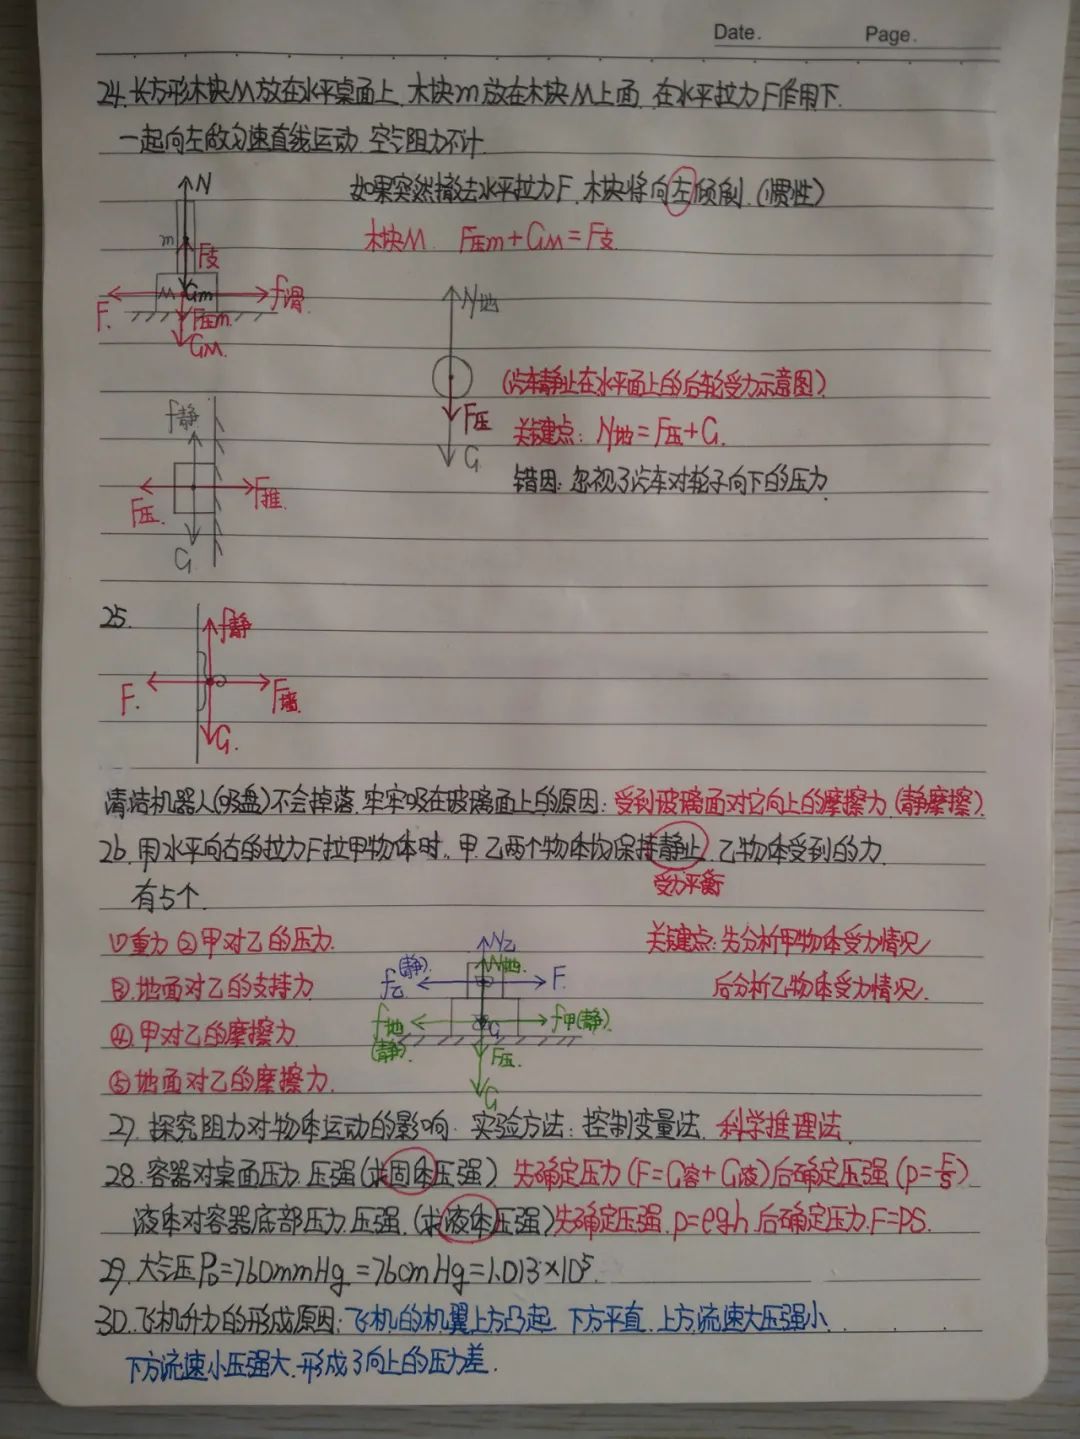 Date. Page.
24. 长方形木块M放在水平桌面上,木块m放在木块M上面,在水平拉力F作用下.
一起向左做匀速直线运动,空气阻力不计
如果突然撤去水平拉力F,木块将向左倾倒.(惯性)
木块M. F压m+GM=F支.
N
m
F支
M Gm
F. f滑.
F压m.
GM.
N地
(汽车静止在水平面上的后轮受力示意图)
F压
关键点: N地=F压+G.
G
错因: 忽视了汽车对轮子向下的压力.
f静
F压. F推.
G
25.
f静
F. F墙.
G.
清洁机器人(吸盘)不会掉落.牢牢吸在玻璃面上的原因: 受到玻璃面对它向上的摩擦力.(静摩擦).
26. 甲水平向右的拉力F拉甲物体时,甲.乙两个物体均保持静止.乙物体受到的力
受力平衡
有5个.
①重力 ②甲对乙的压力.
③.地面对乙的支持力
④.甲对乙的摩擦力
⑤地面对乙的摩擦力.
N乙
N地
(静).
f乙 F.
f地 G f甲(静).
(静).
F压.
G
关键点: 先分析甲物体受力情况
后分析乙物体受力情况.
27. 探究阻力对物体运动的影响. 实验方法: 控制变量法. 科学推理法
28. 容器对桌面压力.压强(求固体压强) 先确定压力(F=G容+G液)后确定压强(p=F/S)
液体对容器底部压力.压强.(求液体压强)先确定压强.p=ρgh.后确定压力.F=PS.
29. 大气压P₀=760mmHg=76cmHg=1.013×10⁵.
30. 飞机升力的形成原因: 飞机的机翼上方凸起.下方平直.上方流速大压强小.
下方流速小压强大.形成了向上的压力差.